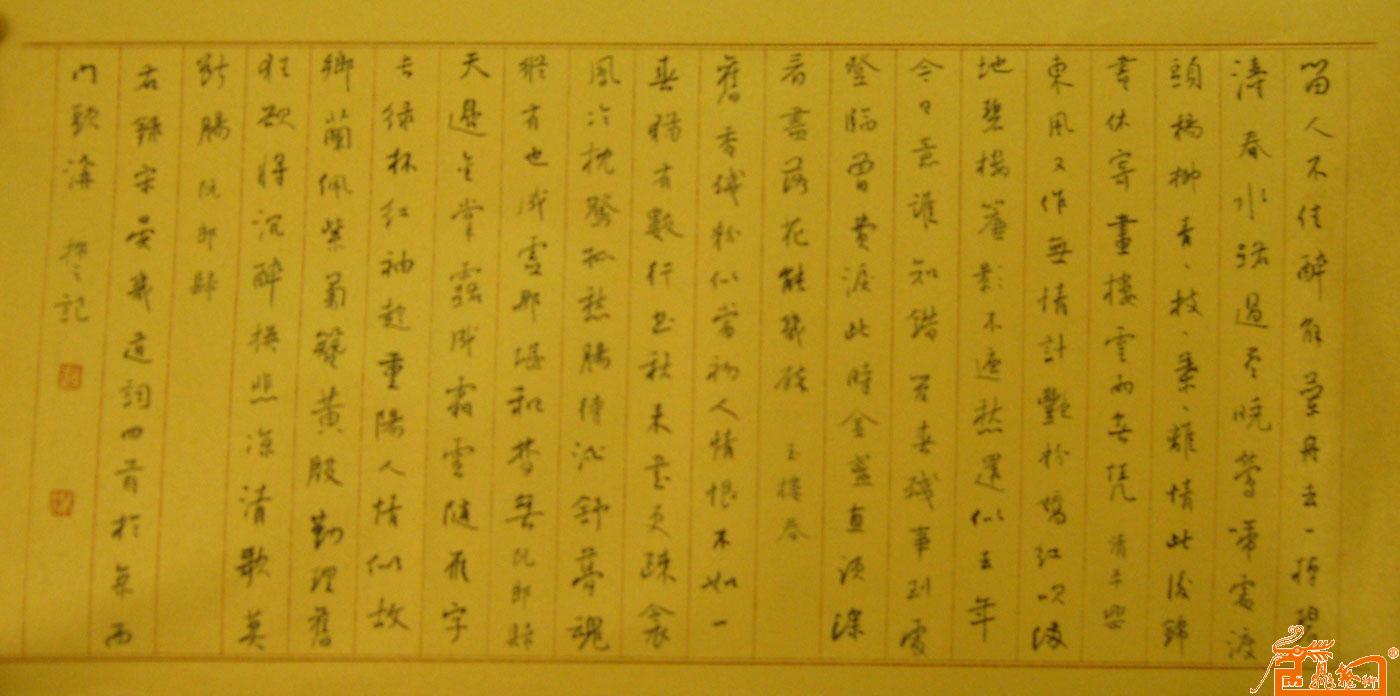 留人不住醉解蘭舟去一棹碧
濤春水路過尽曉鶯啼處渡
頭楊柳青、枝、葉、離情此後錦
書休寄畫樓雲雨無凭 清平樂
東風又作無情計艷粉嬌紅吹滿
地碧樓簾影不遮愁還似去年
今日意誰知錯管春殘事到處
登臨曾費淚此時金盞直須深
看盡落花能幾醉 玉樓春
舊香殘粉似當初人情恨不如一
春猶有數行書秋来書更疎衾
鳳冷枕鴛孤愁腸待酒舒夢魂
縱有也成虛那堪和夢無 阮郎歸
天邊金掌露成霜雲隨雁字
長綠杯紅袖趁重陽人情似故
鄉蘭佩紫菊簪黄殷勤理舊
狂欲将沉醉換悲凉清歌莫
断腸 阮郎歸
右録宋晏幾道詞四首於
門歌海 記